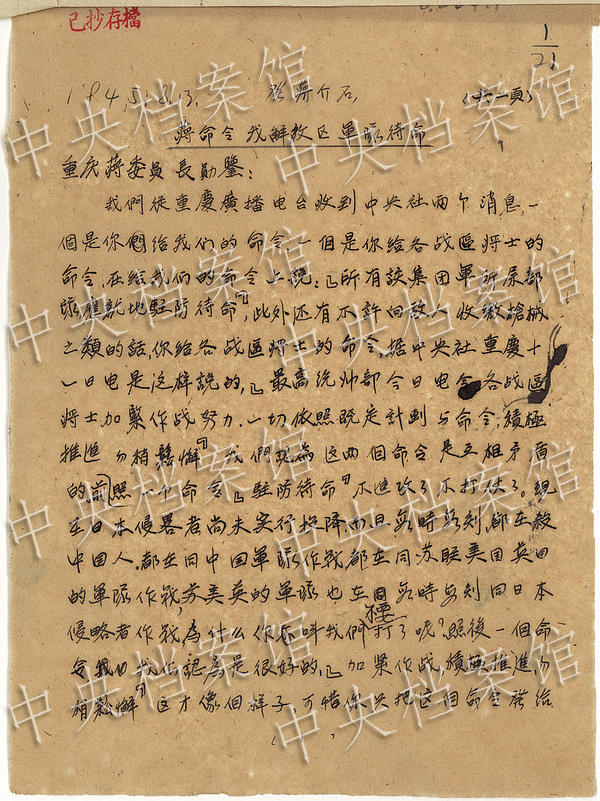 已抄存檔
1/21
1945.8.13. 致蔣介石, (共一頁)
蔣命令我解放区軍隊待命
重庆蒋委員長勛鑒:
我們從重慶廣播电台收到中央社两个消息,一
個是你們给我们的命令,一個是你给各战區将士的
命令,在给我们的命令上說:『所有該集团軍所属部
隊應就地駐防待命』,此外还有不許向敌人收繳槍械
之類的話,你给各战區将士的命令,据中央社重慶十
一日电是这样說的,『最高统帅部今日电令各战區
将士加緊作战努力,一切依照既定計划与命令,積極
推進勿稍鬆懈』我們認為这两個命令是互相矛盾
的,前照一个命令『駐防待命』不進攻了不打仗了。現
在日本侵畧者尚未实行投降,而且每時每刻都在殺
中国人,都在同中国軍隊作战,都在同苏联美国英国
的軍隊作战,苏美英的軍隊也在每時每刻同日本
侵略者作战,為什么你不叫我們打了呢?照後一個命
令 我们認為是很好的,『加緊作战,積極推進,勿
稍鬆懈』这才像個样子,可惜你只把这個命令發给
中央档案馆